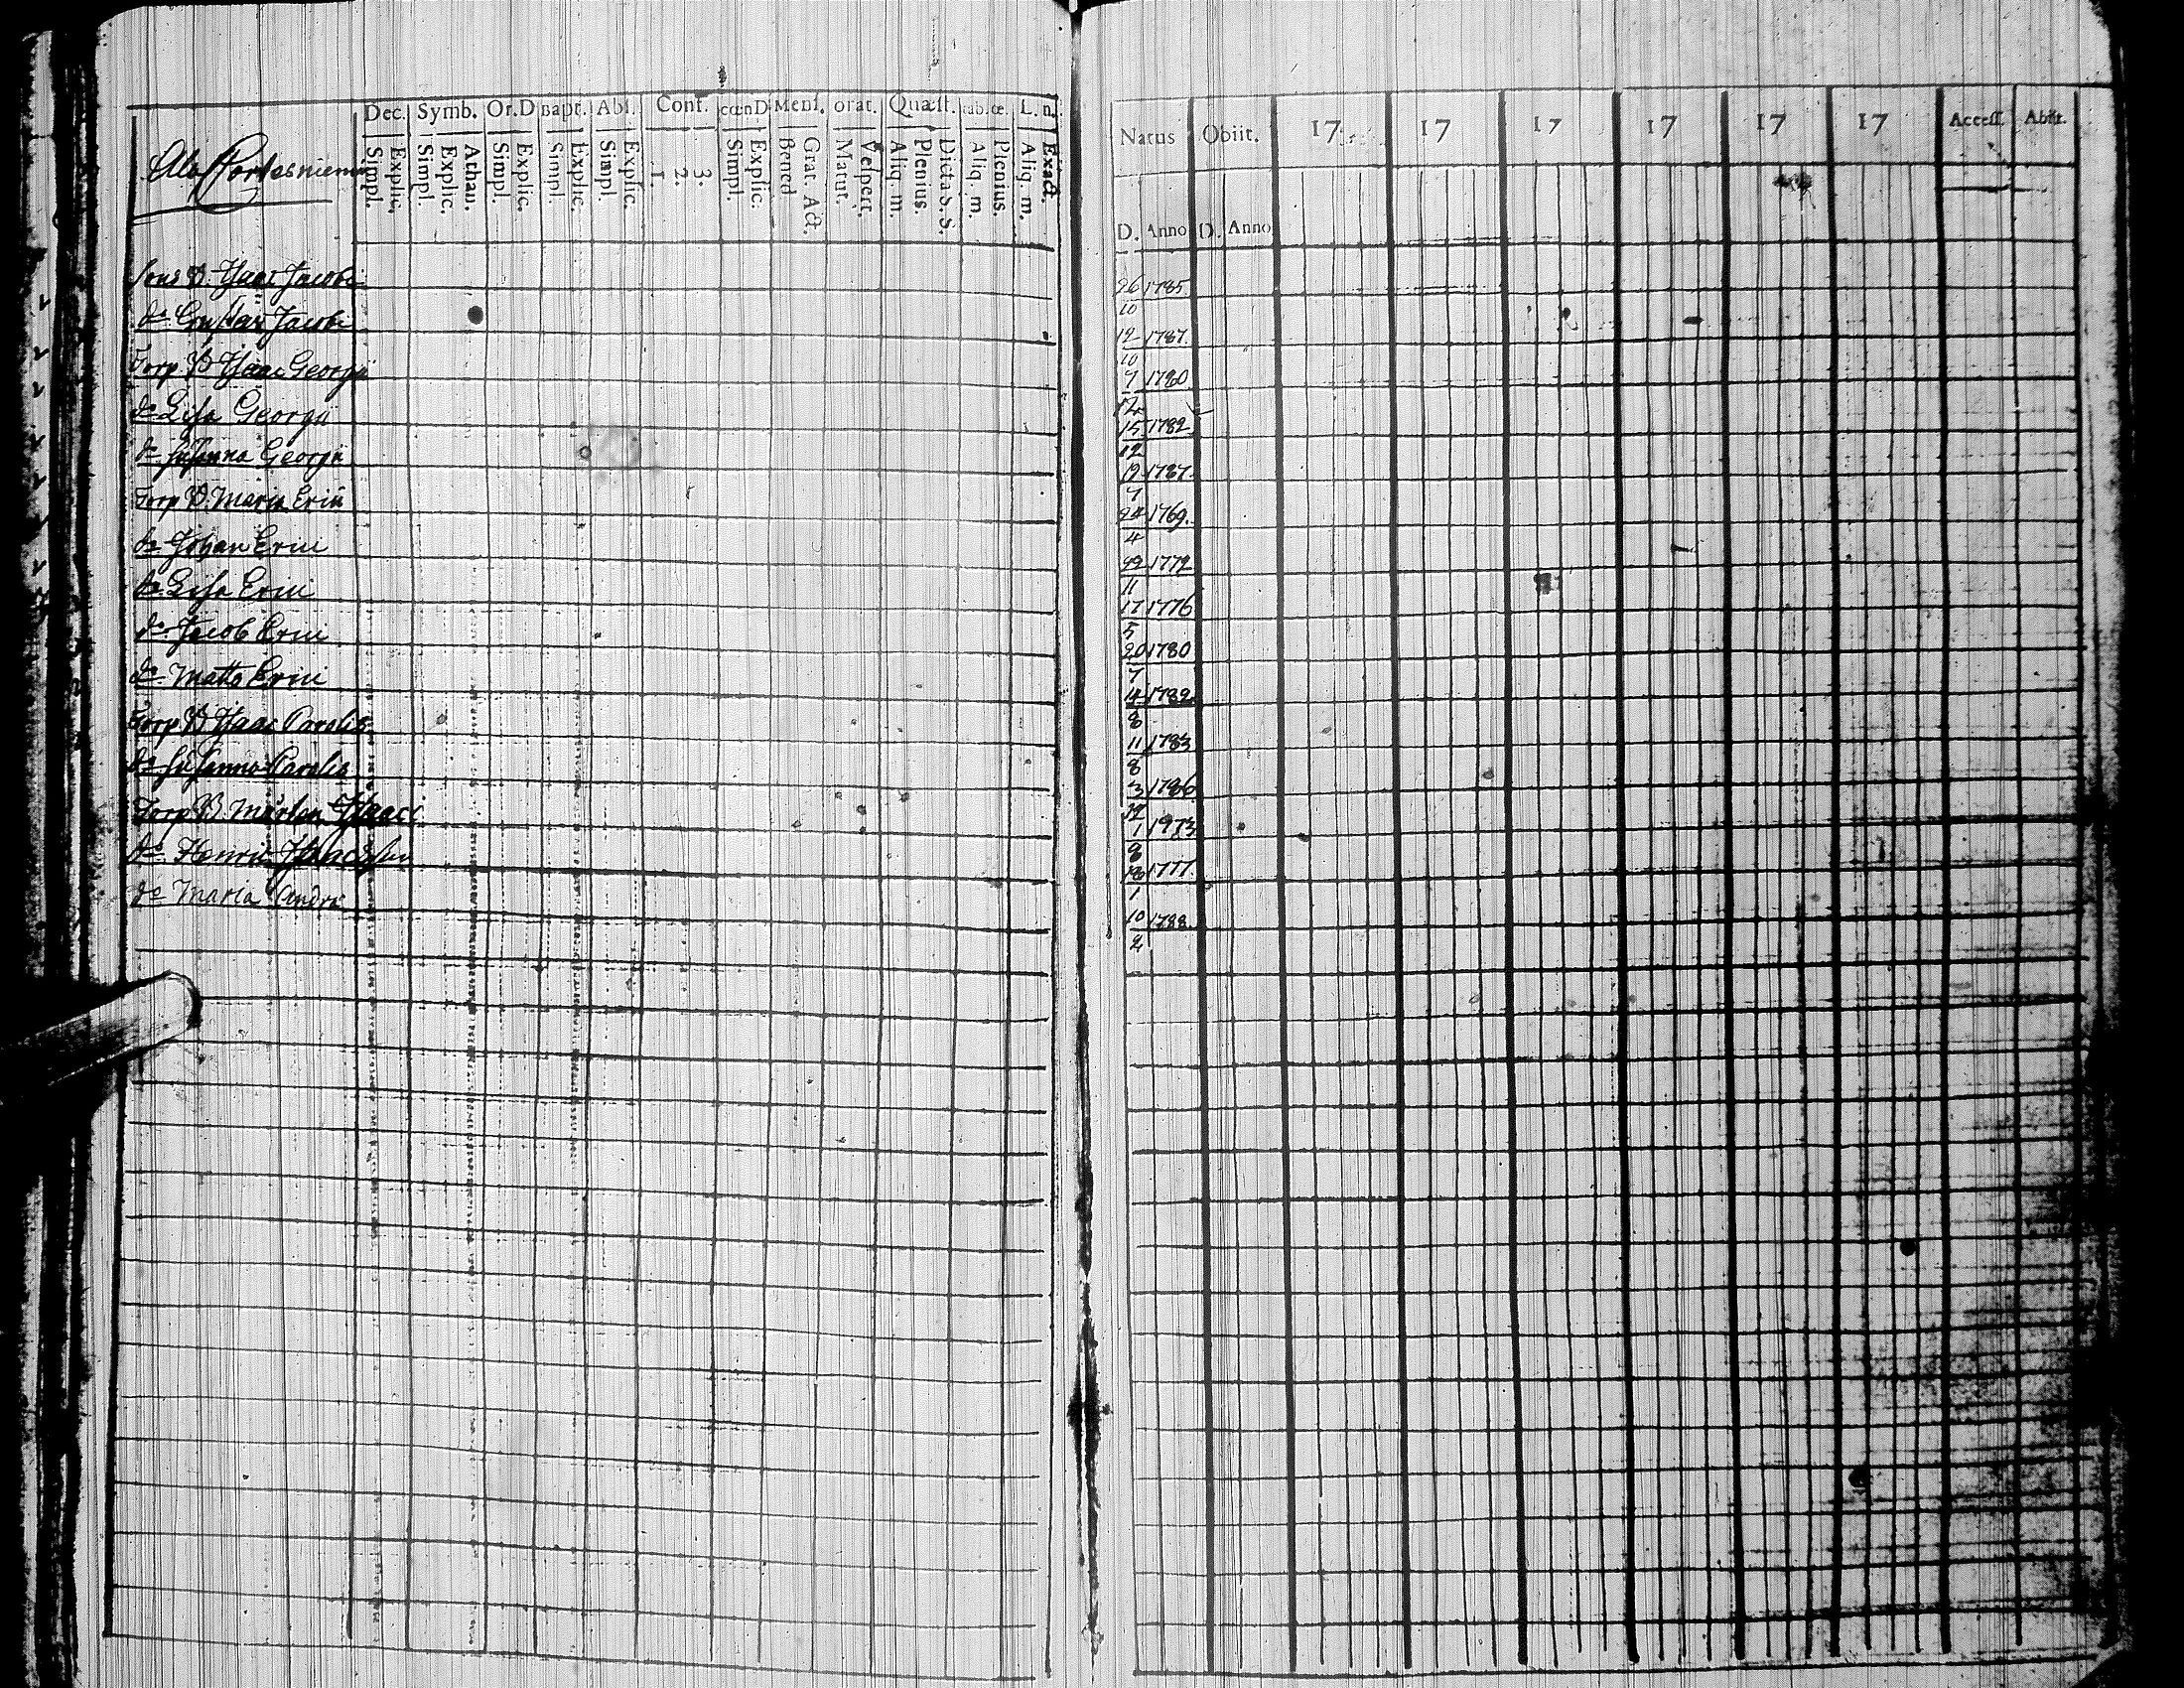 Dec. Symb. Or.D Bapt. Abs. Conf. cœnD Mens. orat. Quæst. tab.œ. L. n.
Simpl. Explic. Simpl. Explic. Athan. Simpl. Explic. Simpl. Explic. Simpl. Explic. 1. 2. 3. Simpl. Explic. Bened Grat. Act. Matut. Vespert. Aliq. m. Plenius. Dicta S. S. Aliq. m. Plenius. Aliq. m. Exact.
Natus Obiit. 17 17 17 17 17 17 Access. Abiit.
D. Anno D. Anno
Sons B. Isaac Jacobi 26/10 1785
do Gustav Jacobi 12/10 1787.
Torp B Isaac Georgii 9/12 1780
do Lisa Georgii 15/12 1782
do Susanna Georgii 19/7 1787.
Torp B. Maria Erici 24/4 1769.
do Johan Erici 1772
do Lisa Erici 17/5 1776
do Jacob Erici 20/7 1780
do Matts Erici 14/8 1782
Torp B Isaac Caroli 11/8 1783
do Susanna Caroli 3/12 1786
Torp B Mårten Isaac
do Henric Isaacsson 1777.
do Maria Andrs 10/2 1788.